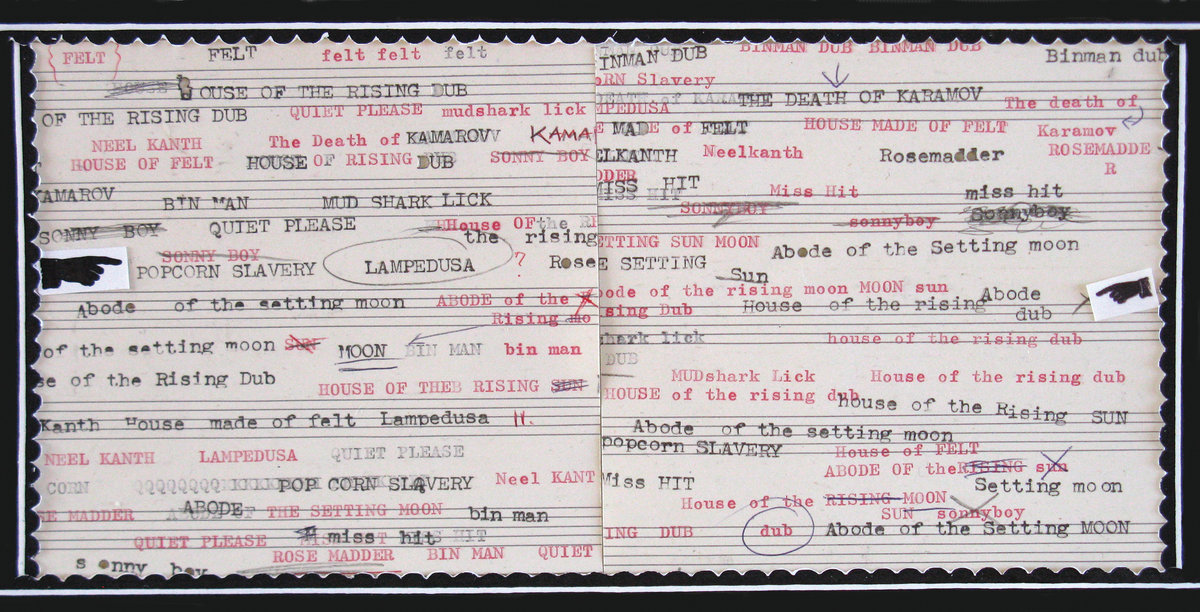 { FELT } FELT felt felt felt
HOUSE OF THE RISING DUB
OF THE RISING DUB QUIET PLEASE mudshark lick
NEEL KANTH The Death of KAMAROV KAMA
HOUSE OF FELT HOUSE OF RISING DUB SONNY BOY
AMAROV BIN MAN MUD SHARK LICK
SONNY BOY QUIET PLEASE House OF the RI
the rising
SONNY BOY
POPCORN SLAVERY LAMPEDUSA ? Rose
Abode of the setting moon ABODE of the
Rising mo
of the setting moon SUN MOON BIN MAN bin man
se of the Rising Dub HOUSE OF THE RISING SUN
Kanth House made of felt Lampedusa
NEEL KANTH LAMPEDUSA QUIET PLEASE
CORN QQQQQQQQ POP CORN SLAVERY Neel KANT
SE MADDER ABODE OF THE SETTING MOON bin man
QUIET PLEASE miss hit HIT
ROSE MADDER BIN MAN QUIET
sonny boy
INMAN DUB BINMAN DUB BINMAN DUB Binman dub
ORN Slavery
DEATH of KARA THE DEATH OF KARAMOV The death of
MPEDUSA
E MADE of FELT HOUSE MADE OF FELT Karamov
ELKANTH Neelkanth Rosemadder ROSEMADDE
R
DDER
MISS HIT Miss Hit miss hit
SONNYBOY sonnyboy Sonnyboy
ETTING SUN MOON Abode of the Setting moon
E SETTING Sun
bode of the rising moon MOON sun Abode
sing Dub House of the rising dub
shark lick house of the rising dub
DUB
MUDshark Lick House of the rising dub
HOUSE of the rising dub house of the Rising SUN
Abode of the setting moon
popcorn SLAVERY House of FELT
ABODE OF the RISING sun
Miss HIT Setting moon
House of the RISING MOON
SUN sonnyboy
ING DUB dub Abode of the Setting MOON